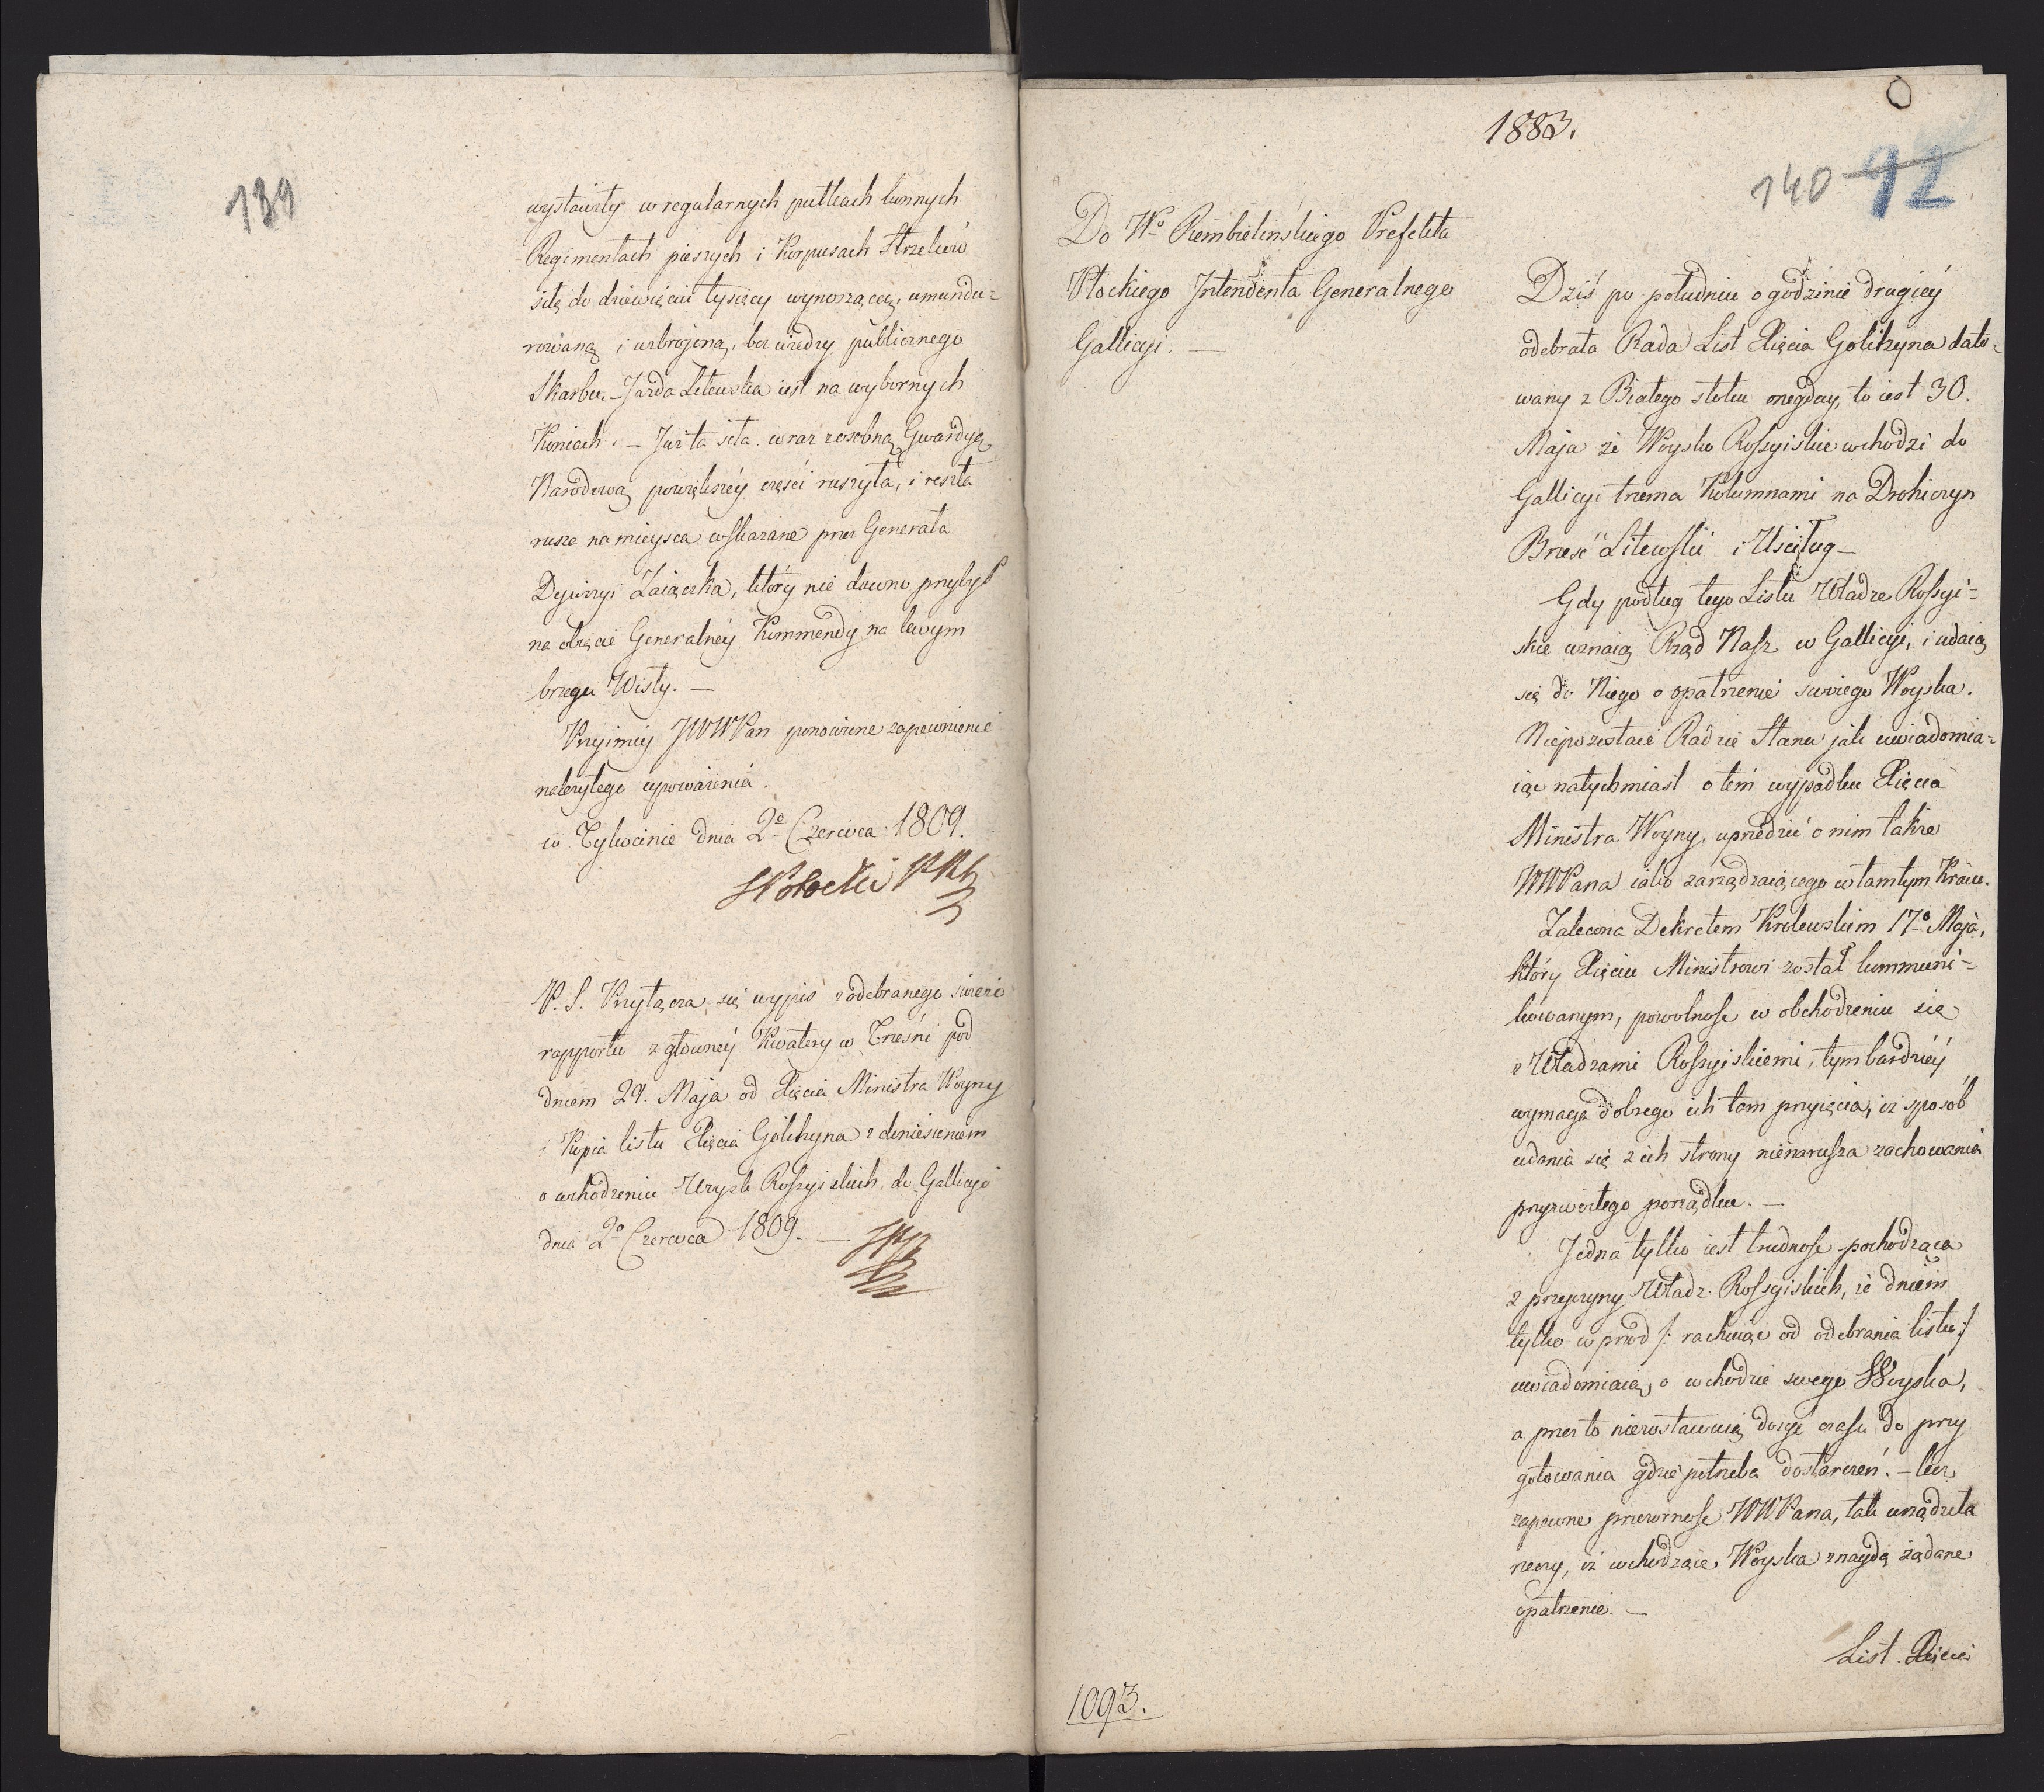 139
wystawiły w regularnych pułkach konnych
Regimentach pieszych i Korpusach Strzelców
siłę do dziewięciu tysięcy wynoszącą, umundu=
rowaną i uzbrojoną, bez wiedzy publicznego
Skarbu. – Jazda Litewska iest na wybornych
Koniach. – Już ta siła wraz z osobną Gwardyą
Narodową powiększéy części ruszyła, i reszta
rusza na mieysca wskazane przez Generała
Dywizyi Zaiączka, który nie dawno przybył
na obięcie Generalnéy Kommendy na lewym
brzegu Wisły. —
Przyimiey JWWPan ponowione zapewnienie
należytego upoważenia.
w Tykocinie dnia 2o Czerwca 1809.
SPotocki PR
P. S. Przyłącza się wypis z odebranego świeżo
rapportu z główney Kwatery w Trześni pod
dniem 29. Maja od Xięcia Ministra Woyny
i Kopia listu Xięcia Golitzyna z doniesieniem
o wchodzeniu Woysk Rossyiskich do Gallicyi
dnia 2o Czerwca 1809. —
1883.
140 92
Do Wo Rembielińskiego Prefekta
Płockiego Jntendenta Generalnego
Gallicyi. —
Dziś po południu o godzinie drugiéy
odebrała Rada List Xięcia Golitzyna dato=
wany z Białego stoku onegday, to iest 30.
Maja że Woysko Rossyiskie wchodzi do
Gallicyi trzema Kolumnami na Drohiczyn
Brześć Litewski i Uściług —
Gdy podług tego Listu Władze Rossyi=
skie uznaią Rząd Nasz w Gallicyi, i udaią
się do Niego o opatrzenie swoiego Woyska.
Niepozostaie Radzie Stanu jak uwiadomia=
iąc natychmiast o tém wypadku Xięcia
Ministra Woyny, uprzedzić o nim także
WWPana iako zarządzaiącego w tamtym Kraiu.
Zalecona Dekretem Krolewskim 17o Maja,
który Xięciu Ministrowi został kommuni=
kowanym, powolnosc w obchodzeniu się
z Władzami Rossyiskiemi, tym bardziéy
wymaga dobrego ich tam przyięcia, iż sposób
udania się z ich strony nienarusza zachowania
przyzwoitego porządku. —
Jedna tylko iest trudnosc pochodząca
z przyczyny Władz Rossyiskich, że dniem
tylko w przod /: rachuiąc od odebrania listu :/
uwiadomiaią o wchodzie swego Woyska,
a przez to niezostawuią dosyć czasu do przy
gotowania gdzie potrzeba dostarczeń. – lecz
zapewne przezornosc WWPana, tak urządziła
rzeczy, iż wchodzące Woyska znaydą żądane
opatrzenie. —
List Xięcia
1093.